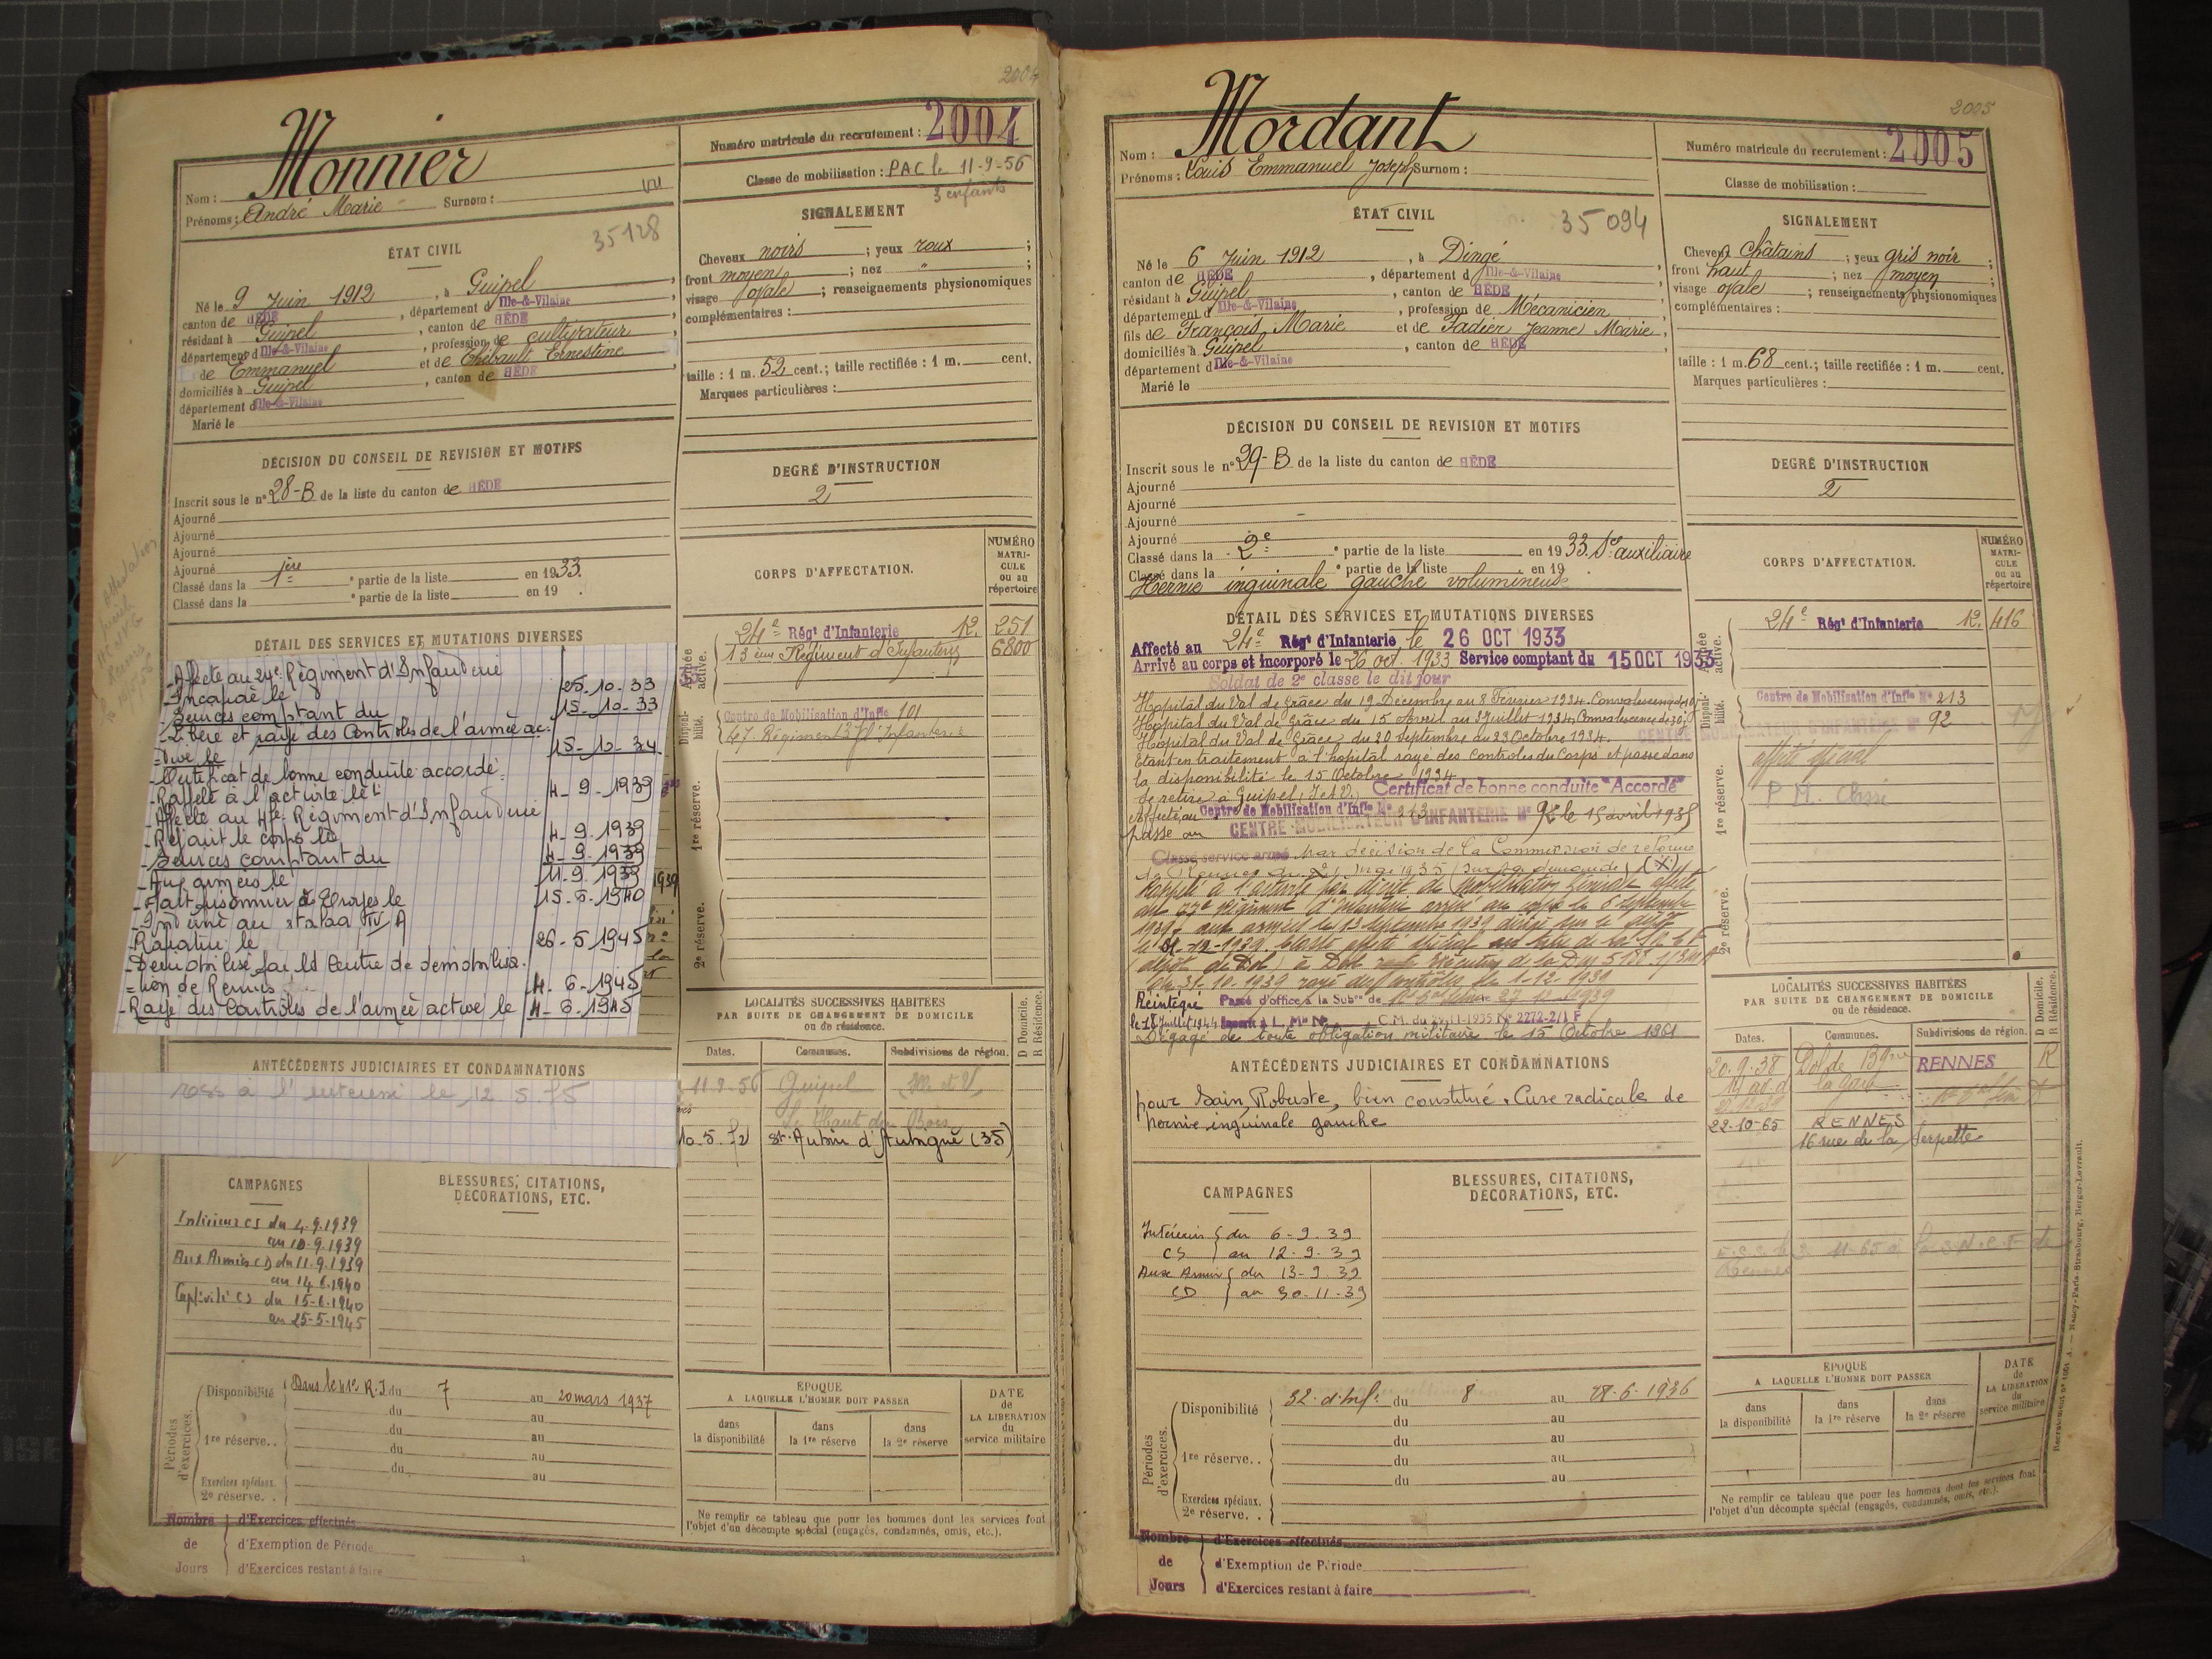 2004
Monnier
Nom :
Prénoms : André Marie Surnom :
vu
Numéro matricule du recrutement : 2004
Classe de mobilisation : PAC le 11-9-56
3 enfants
ÉTAT CIVIL
35128
Né le 9 Juin 1912, à Guipel,
canton de HÉDÉ, département d Ille-&-Vilaine
résidant à Guipel, canton de HÉDÉ
département d Ille-&-Vilaine, profession de cultivateur
de Emmanuel et de Thébault Ernestine
domiciliés à Guipel, canton de HÉDÉ
département d Ille-&-Vilaine
Marié le
SIGNALEMENT
Cheveux noirs ; yeux roux ;
front moyen ; nez " ;
visage ovale ; renseignements physionomiques
complémentaires :
taille : 1 m. 52 cent.; taille rectifiée : 1 m. cent.
Marques particulières :
DÉCISION DU CONSEIL DE REVISION ET MOTIFS
Inscrit sous le n° 28-B de la liste du canton de HÉDÉ
Ajourné
Ajourné
Ajourné
Ajourné
Classé dans la 1ère e partie de la liste en 1933.
Classé dans la e partie de la liste en 19 .
DEGRÉ D'INSTRUCTION
2
CORPS D'AFFECTATION.
NUMÉRO MATRI-CULE ou au répertoire
24e Régt d'Infanterie R. 251
13ème Régiment d'Infanterie 6800
Centre de Mobilisation d'Infie 101
47 Régiment d'Infanterie
Armée active.
Disponi-bilité.
1re réserve.
2e réserve.
DÉTAIL DES SERVICES ET MUTATIONS DIVERSES
- Affecté au 24e Régiment d'Infanterie
- Incorporé le 25-10-33
- Services comptant du 15-10-33
- Libéré et rayé des Contrôles de l'armée ac-
=tive le 15-10-34
- Certificat de bonne conduite accordé.
- Rappelé à l'activité le 4-9-1939
- Affecté au 41e Régiment d'Infanterie
- Rejoint le corps le 4-9-1939
- Services comptant du 4-9-1939
- Aux armées le 11-9-1939
- Fait prisonnier à Troyes le 15-6-1940
- Interné au stalag IV A
- Rapatrié le 26-5-1945
- Démobilisé par le Centre de démobilisa-
=tion de Rennes 4-6-1945
- Rayé des Contrôles de l'armée active le 4-6-1945
ANTÉCÉDENTS JUDICIAIRES ET CONDAMNATIONS
12 5 75
CAMPAGNES
Intérieur CS du 4.9.1939
au 10.9.1939
Aux Armées CD du 11.9.1939
au 14.6.1940
Captivité CS du 15-6-1940
au 25-5-1945
BLESSURES, CITATIONS,
DÉCORATIONS, ETC.
LOCALITÉS SUCCESSIVES HABITÉES
PAR SUITE DE CHANGEMENT DE DOMICILE
ou de résidence.
D Domicile.
R Résidence.
Dates. Communes. Subdivisions de région.
11-9-56 Guipel Ille et V.
Le Haut du Bois
10-5-72 St-Aubin d'Aubigné (35)
Périodes d'exercices.
Disponibilité Dans le 41e R.I du 7 au 20 mars 1937
du au
1re réserve.. du au
du au
du au
Exercices spéciaux.
2e réserve. .
ÉPOQUE
A LAQUELLE L'HOMME DOIT PASSER
dans la disponibilité
dans la 1re réserve
dans la 2e réserve
DATE de LA LIBÉRATION du service militaire
Ne remplir ce tableau que pour les hommes dont les services font
l'objet d'un décompte spécial (engagés, condamnés, omis, etc.).
Nombre d'Exercices effectués
de d'Exemption de Période
Jours d'Exercices restant à faire
2005
Mordant
Nom :
Prénoms : Louis Emmanuel Joseph Surnom :
Numéro matricule du recrutement : 2005
Classe de mobilisation :
ÉTAT CIVIL
35094
Né le 6 Juin 1912, à Dingé,
canton de HÉDÉ, département d Ille-&-Vilaine
résidant à Guipel, canton de HÉDÉ
département d Ille-&-Vilaine, profession de Mécanicien
fils de François Marie et de Fadier Jeanne Marie,
domiciliés à Guipel, canton de HÉDÉ
département d Ille-&-Vilaine
Marié le
SIGNALEMENT
Cheveux châtains ; yeux gris noir ;
front haut ; nez moyen ;
visage ovale ; renseignements physionomiques
complémentaires :
taille : 1 m. 68 cent.; taille rectifiée : 1 m. cent.
Marques particulières :
DÉCISION DU CONSEIL DE REVISION ET MOTIFS
Inscrit sous le n° 29-B de la liste du canton de HÉDÉ
Ajourné
Ajourné
Ajourné
Ajourné
Classé dans la 2e e partie de la liste en 1933. Sce auxiliaire
Classé dans la e partie de la liste en 19
Hernie inguinale gauche volumineuse
DEGRÉ D'INSTRUCTION
2
CORPS D'AFFECTATION.
NUMÉRO MATRI-CULE ou au répertoire
24e Régt d'Infanterie R. 416
Centre de Mobilisation d'Infie N° 213
CENTRE MOBILISATEUR D'INFANTERIE N° 92
affecté spécial
Armée active.
Disponi-bilité.
1re réserve.
2e réserve.
DÉTAIL DES SERVICES ET MUTATIONS DIVERSES
Affecté au 24e Régt d'Infanterie le 26 OCT 1933
Arrivé au corps et incorporé le 26 oct. 1933 Service comptant du 15 OCT 1933
Soldat de 2e classe le dit jour
Hôpital du Val de Grâce du 19 Décembre au 8 Février 1934. Convalescence de
Hôpital du Val de Grâce du 15 Avril au Juillet 1934, Convalescence de
Hôpital du Val de Grâce du 20 Septembre au 23 Octobre 1934.
Étant en traitement à l'hôpital rayé des Contrôles du Corps et passé dans
la disponibilité le 15 Octobre 1934
Se retire à Guipel, I et V. Certificat de bonne conduite "Accordé"
Affecté au Centre de Mobilisation d'Infie N° 213
passé au CENTRE MOBILISATEUR D'INFANTERIE N° 92 le 15 avril 1935
Classé service armé par décision de la Commission de réforme
de Rennes du mai 1935 (sur sa demande) (X)
Rappelé à l'activité par décret de Mobilisation Générale affecté
au Régiment d'Infanterie arrivé au corps le 6 septembre
1939, aux armées le 13 septembre 1939
10-1939 rayé des contrôles le 1-12-1939
Réintégré Passé d'office à la Subon de
le 18 Juillet 1944 C.M. du 29-11-1935 N° 2272-2/1 F
Dégagé de toute obligation militaire le 15 Octobre 1961
ANTÉCÉDENTS JUDICIAIRES ET CONDAMNATIONS
pour Sain, Robuste, bien constitué. Cure radicale de
hernie inguinale gauche
CAMPAGNES
Intérieur du 6-9-39
CS au 12-9-39
Aux Armées du 13-9-39
CD au 30-11-39
BLESSURES, CITATIONS,
DÉCORATIONS, ETC.
LOCALITÉS SUCCESSIVES HABITÉES
PAR SUITE DE CHANGEMENT DE DOMICILE
ou de résidence.
D Domicile.
R Résidence.
Dates. Communes. Subdivisions de région.
20.9.38 Dol de RENNES R
la gare
22-10-65 RENNES
16 rue de la Serpette
Périodes d'exercices.
Disponibilité du 8 au 28-6-1936
du au
1re réserve.. du au
du au
du au
Exercices spéciaux.
2e réserve. .
ÉPOQUE
A LAQUELLE L'HOMME DOIT PASSER
dans la disponibilité
dans la 1re réserve
dans la 2e réserve
DATE de LA LIBÉRATION du service militaire
Ne remplir ce tableau que pour les hommes dont les services font
l'objet d'un décompte spécial (engagés, condamnés, omis, etc.).
Nombre d'Exercices effectués
de d'Exemption de Période
Jours d'Exercices restant à faire